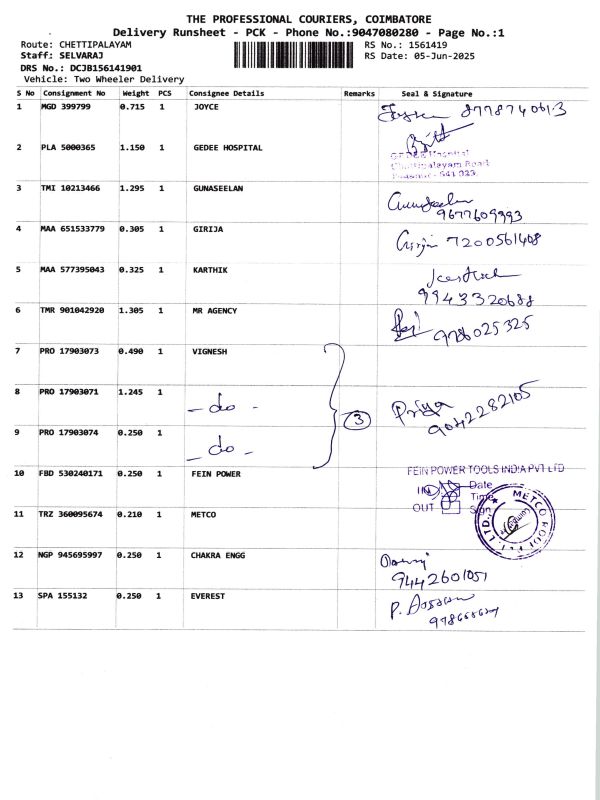 THE PROFESSIONAL COURIERS, COIMBATORE
Delivery Runsheet - PCK - Phone No.:9047080280 - Page No.:1
Route: CHETTIPALAYAM RS No.: 1561419
Staff: SELVARAJ RS Date: 05-Jun-2025
DRS No.: DCJB156141901
Vehicle: Two Wheeler Delivery
S No Consignment No Weight PCS Consignee Details Remarks Seal & Signature
1 MGD 399799 0.715 1 JOYCE 8778740613
2 PLA 5000365 1.150 1 GEDEE HOSPITAL
GEDEE Hospital
Chettipalayam Road
641 023
3 TMI 10213466 1.295 1 GUNASEELAN Gunaseelan
9677609993
4 MAA 651533779 0.305 1 GIRIJA Girija 7200561408
5 MAA 577395043 0.325 1 KARTHIK Karthik
9943320688
6 TMR 901042920 1.305 1 MR AGENCY
978025325
7 PRO 17903073 0.490 1 VIGNESH
8 PRO 17903071 1.245 1 - do - 3 Priya
9042282105
9 PRO 17903074 0.250 1 - do -
10 FBD 530240171 0.250 1 FEIN POWER FEIN POWER TOOLS INDIA PVT LTD
IN Date
Time
OUT Sign
11 TRZ 360095674 0.210 1 METCO METCO ROOF PVT LTD.
12 NGP 945695997 0.250 1 CHAKRA ENGG
9442601051
13 SPA 155132 0.250 1 EVEREST